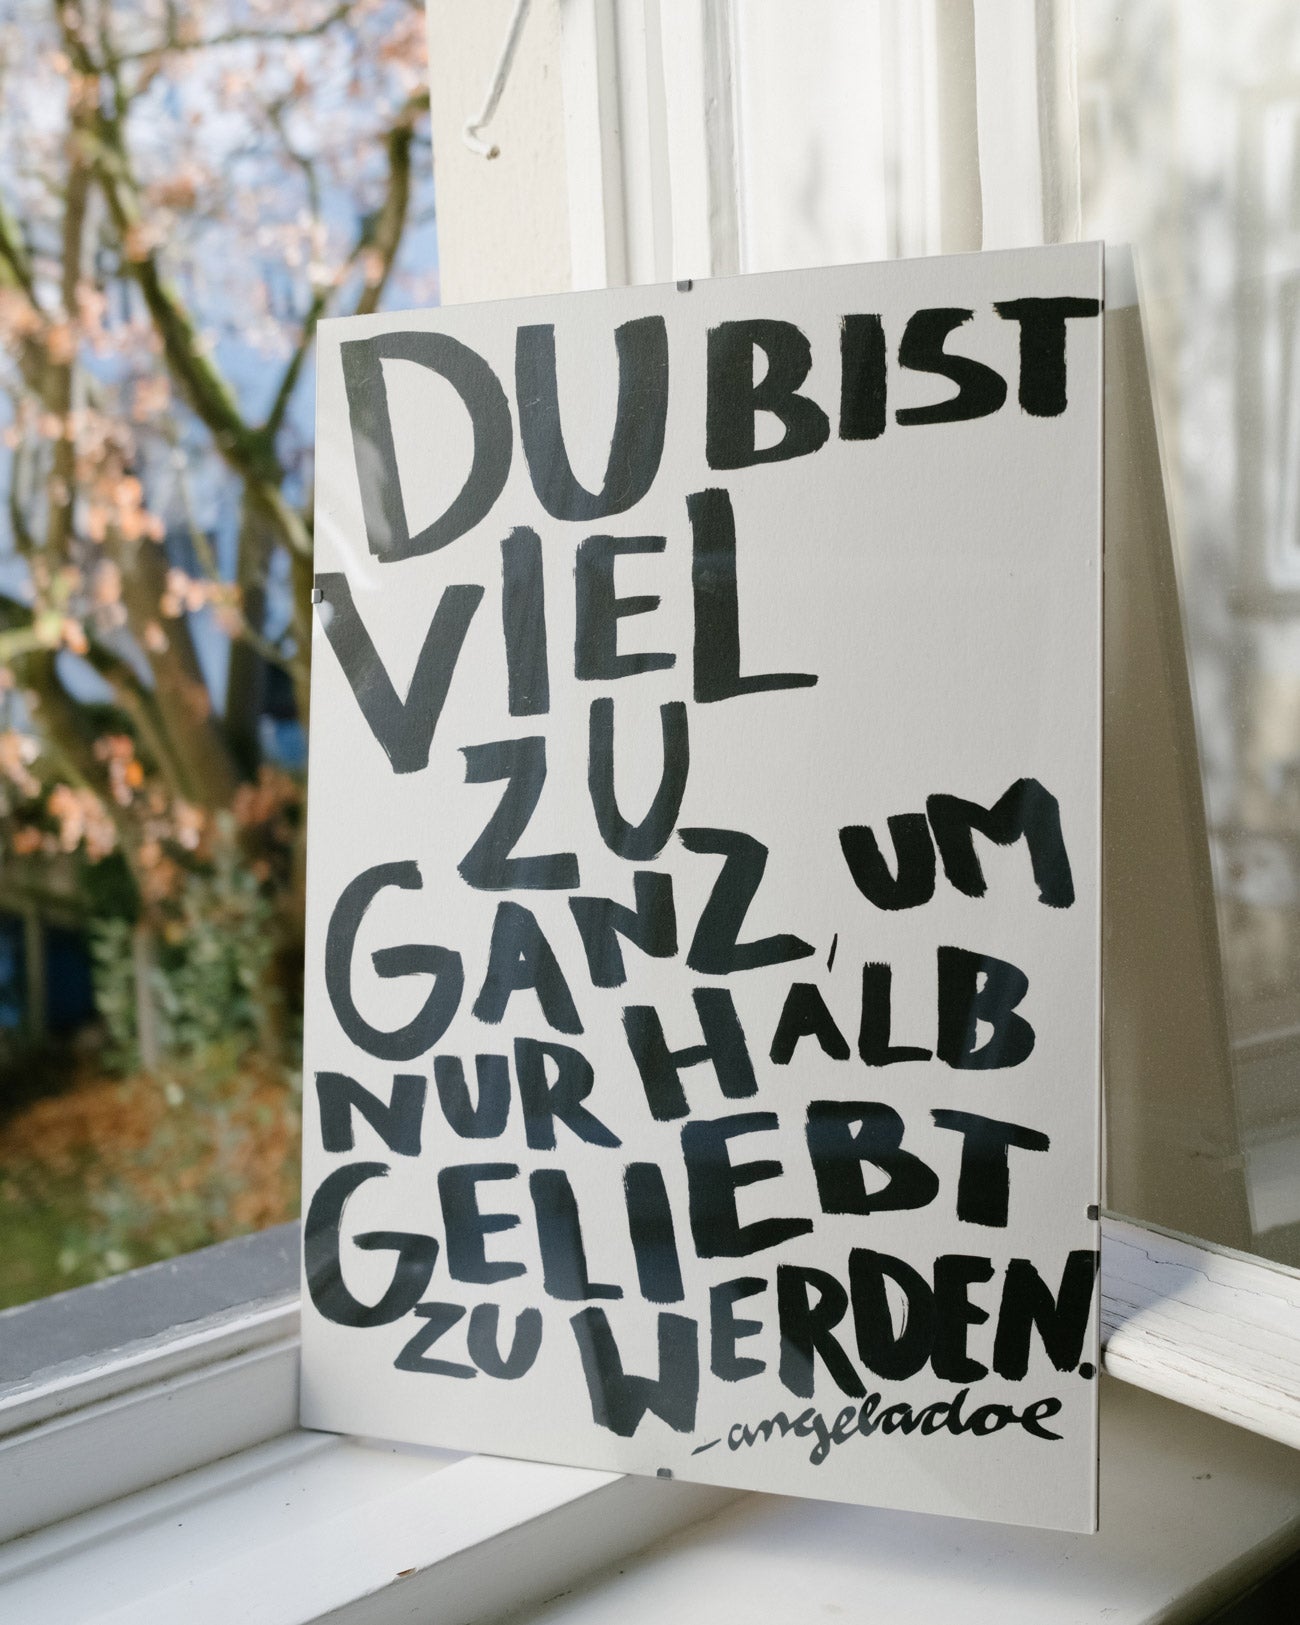 DU BIST
VIEL
ZU
GANZ, UM
NUR HALB
GELIEBT
ZU WERDEN.
- angeladoe